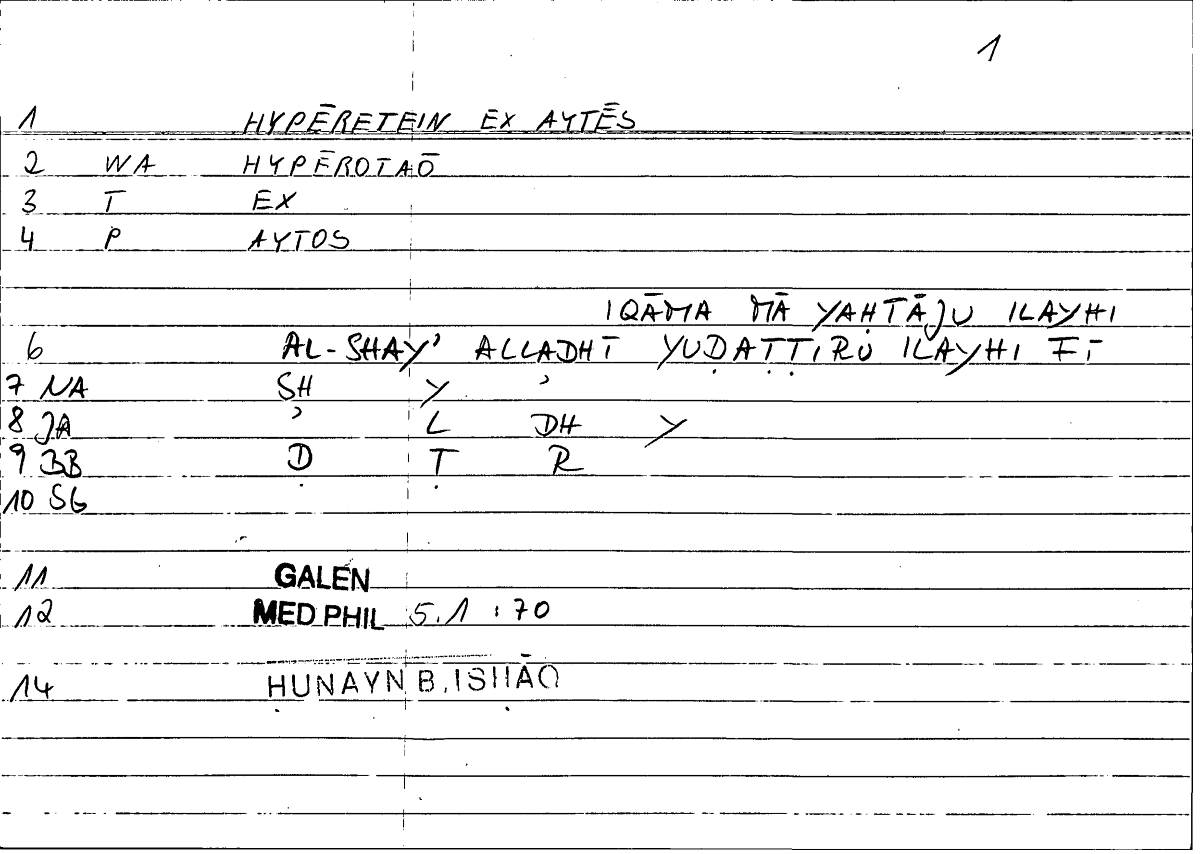 1
1 HYPĒRETEIN EX AYTĒS
2 WA HYPĒROTAŌ
3 T EX
4 P AYTOS
IQĀMA MĀ YAḤTĀJU ILAYHI
6 AL-SHAY' ALLADHĪ YUḌAṬṬIRU ILAYHI FĪ
7 NA SH Y '
8 JA ' L DH Y
9 BB Ḍ Ṭ R
10 SG
11 GALEN
12 MED PHIL 5.1 : 70
14 ḤUNAYN B. ISḤĀQ